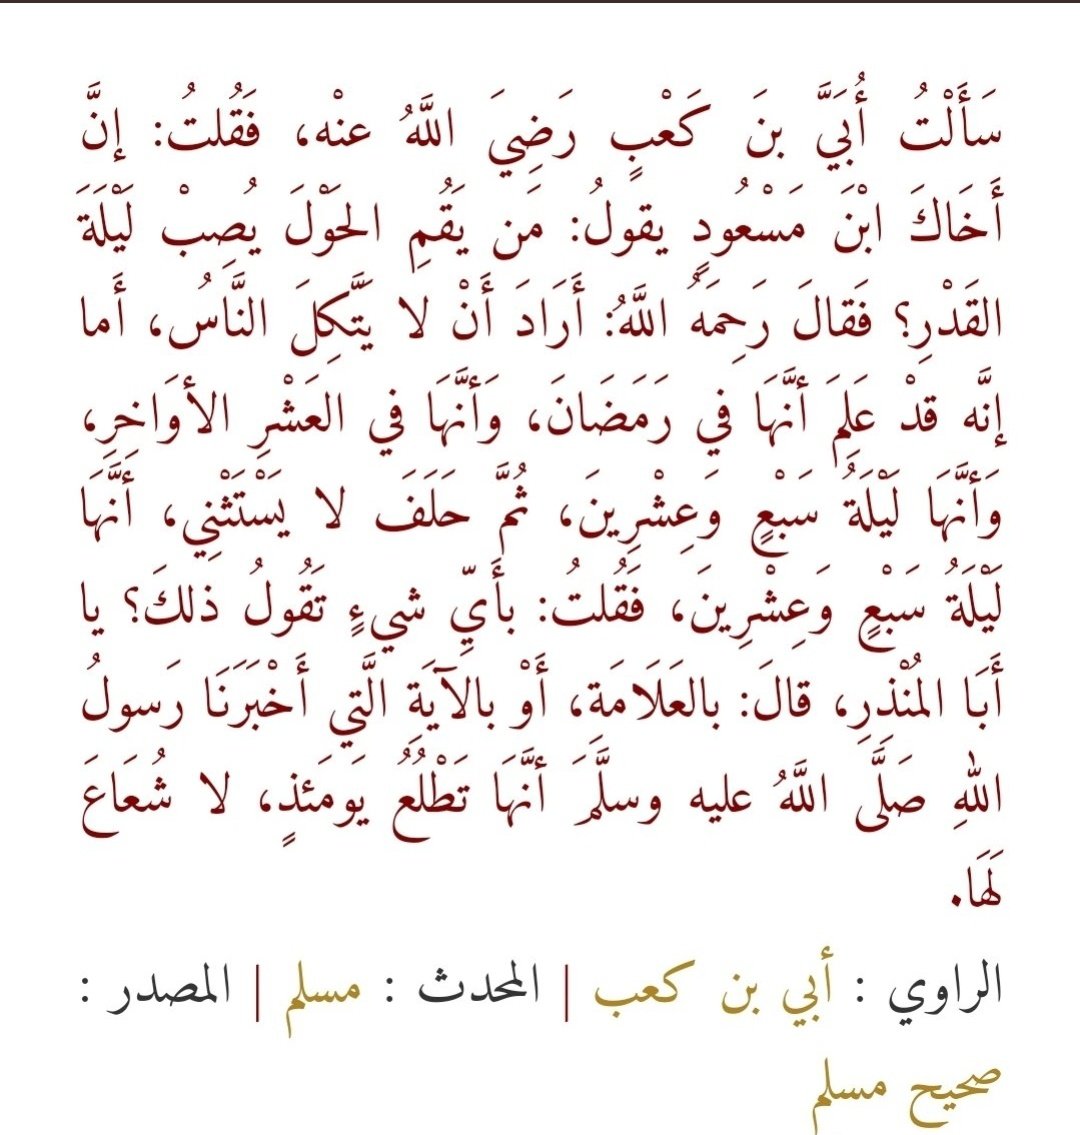 سَأَلْتُ أُبَيَّ بنَ كَعْبٍ رَضِيَ اللَّهُ عنْه، فَقُلتُ: إنَّ
أَخَاكَ ابْنَ مَسْعُودٍ يقولُ: مَن يَقُمِ الحَوْلَ يُصِبْ لَيْلَةَ
القَدْرِ؟ فَقالَ رَحِمَهُ اللَّهُ: أَرَادَ أَنْ لا يَتَّكِلَ النَّاسُ، أَما
إنَّه قدْ عَلِمَ أنَّهَا في رَمَضَانَ، وَأنَّهَا في العَشْرِ الأوَاخِرِ،
وَأنَّهَا لَيْلَةُ سَبْعٍ وَعِشْرِينَ، ثُمَّ حَلَفَ لا يَسْتَثْنِي، أنَّهَا
لَيْلَةُ سَبْعٍ وَعِشْرِينَ، فَقُلتُ: بأَيِّ شيءٍ تَقُولُ ذلكَ؟ يا
أَبَا المُنْذِرِ، قالَ: بالعَلَامَةِ، أَوْ بالآيَةِ الَّتي أَخْبَرَنَا رَسولُ
اللهِ صَلَّى اللَّهُ عليه وسلَّمَ أنَّهَا تَطْلُعُ يَومَئذٍ، لا شُعَاعَ
لَهَا.
الراوي : أبي بن كعب | المحدث : مسلم | المصدر :
صحيح مسلم